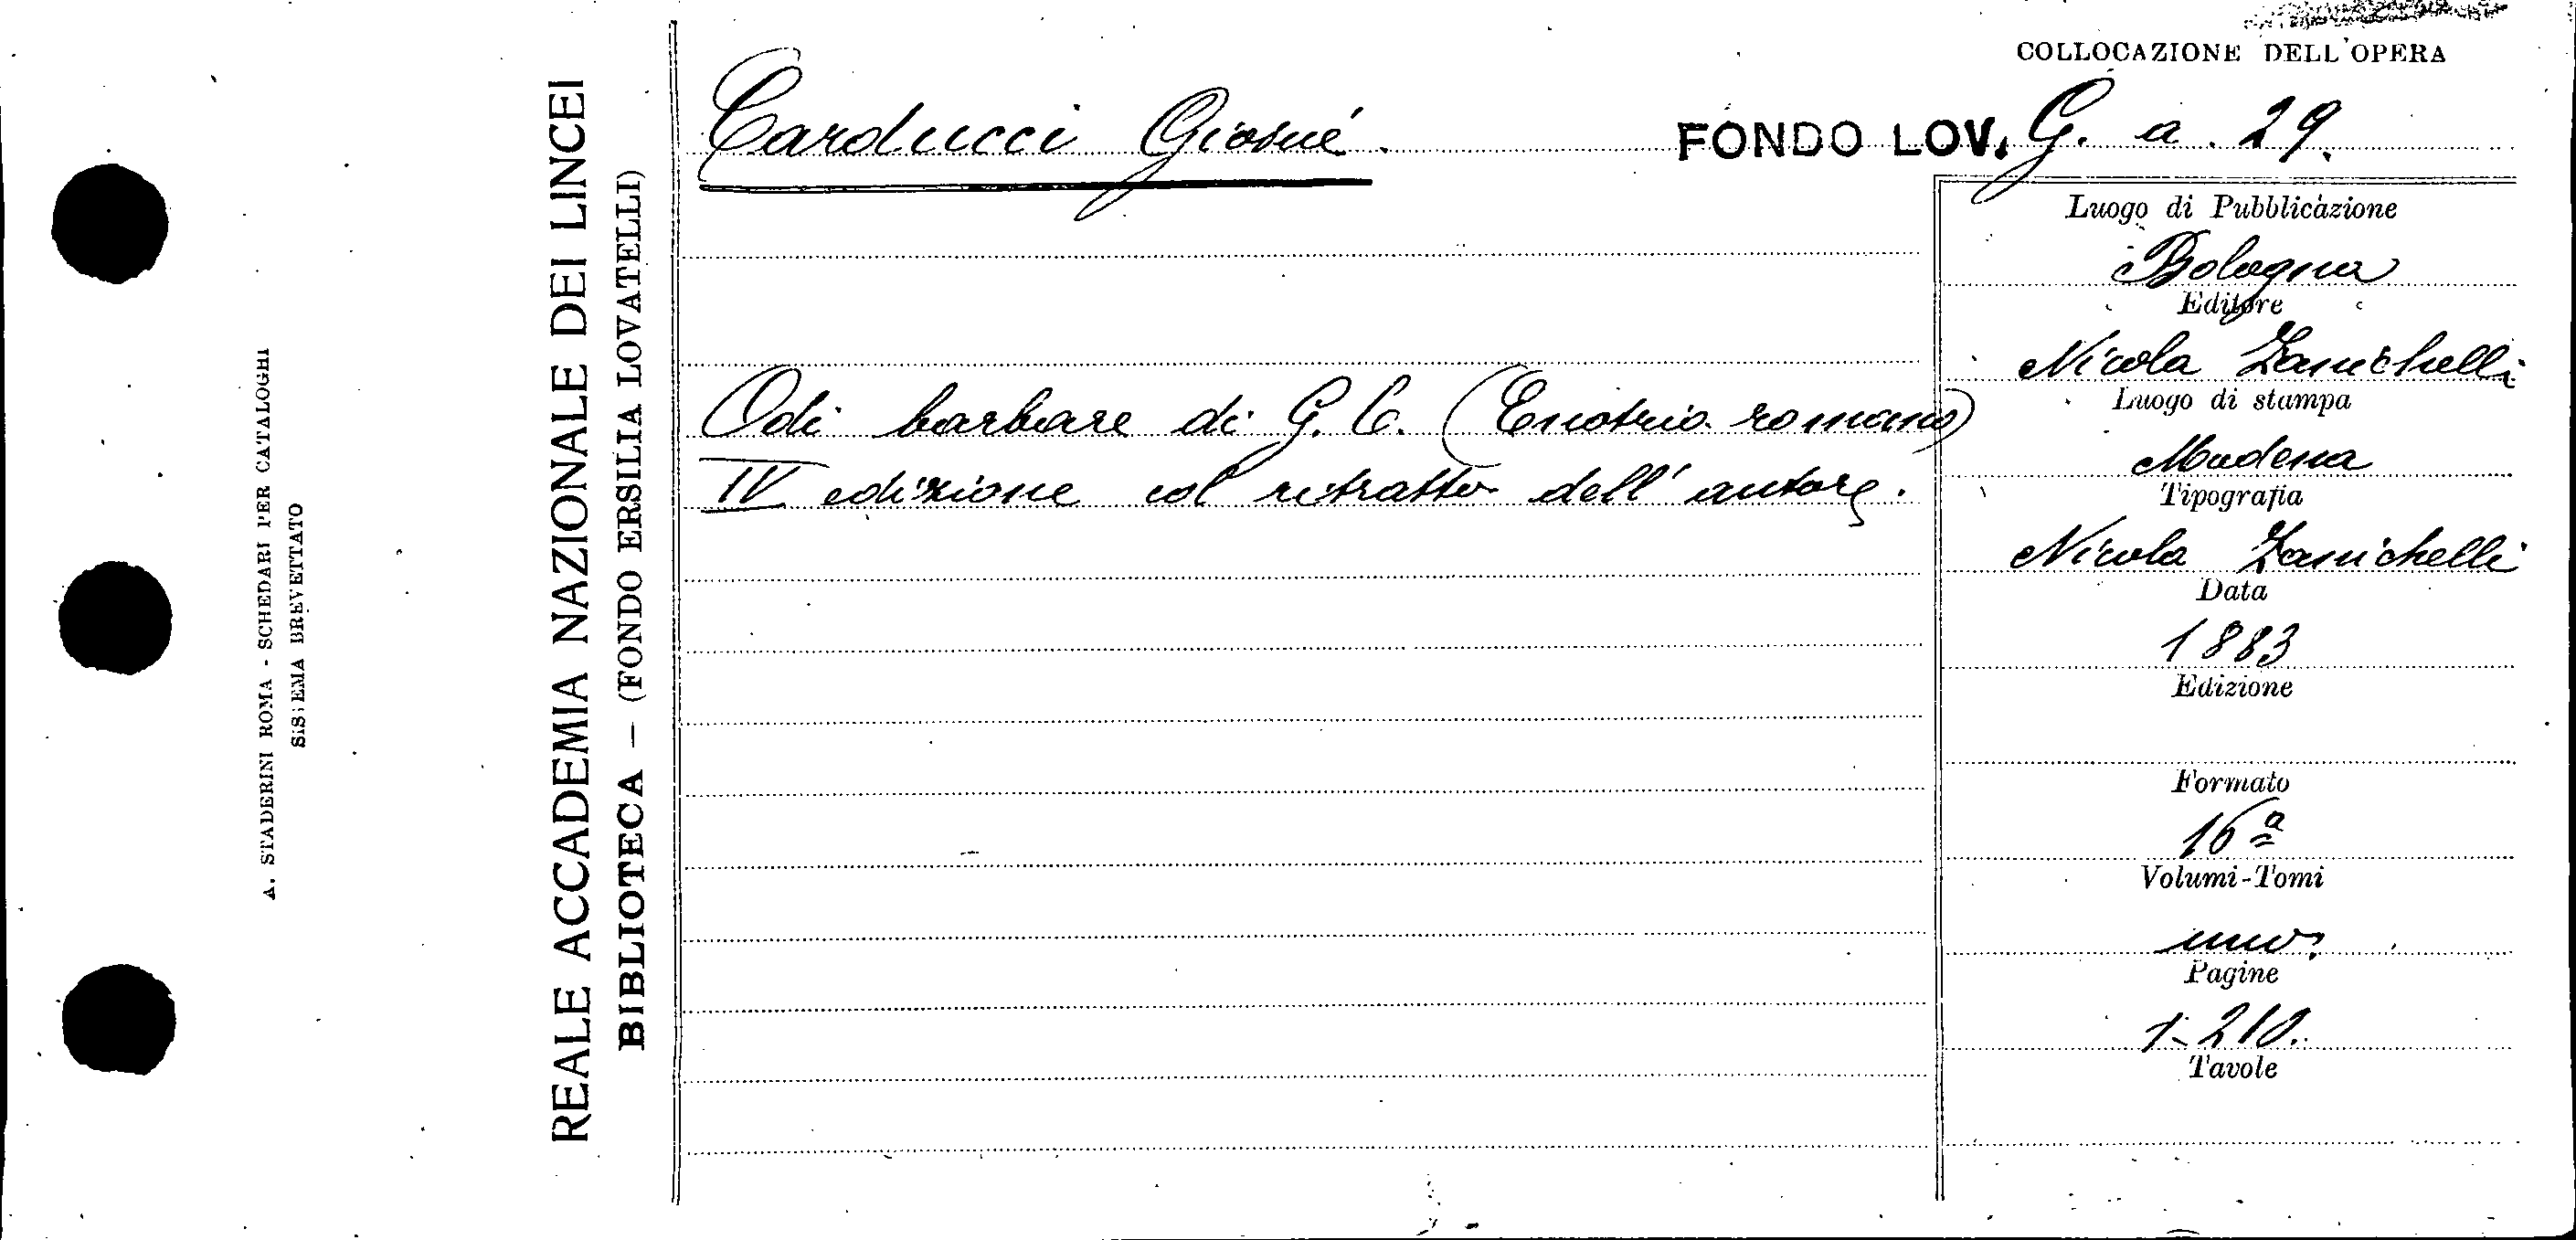 A. STADERINI ROMA - SCHEDARI PER CATALOGHI
SISTEMA BREVETTATO
REALE ACCADEMIA NAZIONALE DEI LINCEI
BIBLIOTECA — (FONDO ERSILIA LOVATELLI)
COLLOCAZIONE DELL'OPERA
Carducci Giosué.
FONDO LOV. G. a. 29.
Odi barbare di G. C. (Enotrio romano)
IV edizione col ritratto dell'autore.
Luogo di Pubblicazione
Bologna
Editore
Nicola Zanichelli
Luogo di stampa
Modena
Tipografia
Nicola Zanichelli
Data
1883
Edizione
Formato
16ª
Volumi-Tomi
uno
Pagine
1-210.
Tavole